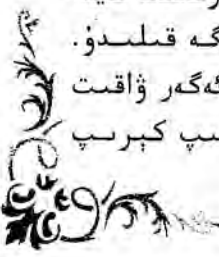 گە قىلىدۇ.
ئەگەر ۋاقىت
ىپ كېرىپ